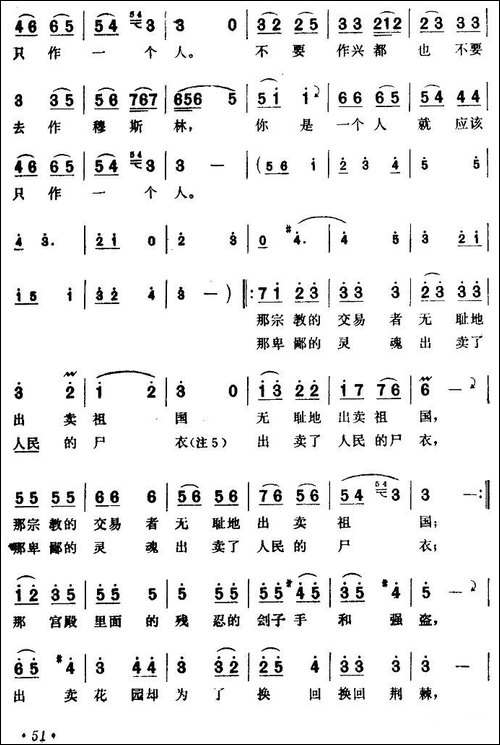 4 6 6 5 | 5 4 3 | 3 0 | 3 2 2 5 | 3 3 2 1 2 | 3 2 3 3 |
只 作 一 个 人。 不 要 作兴 都 也 不要
3 3 5 | 5 6 7 6 7 | 6 5 6 5 | 5 i i | 6 6 6 5 | 5 4 4 4 |
去 作 穆 斯 林, 你 是 一个 人 就 应该
4 6 6 5 | 5 4 3 | 3 — | (5 6 i | 2 3 4 | 5 5 |
只 作 一 个 人。
4 3. | 2 i 0 | 2 3 | 0 #4. | 4 4 | 5 3 | 2 i |
i 5 i | 3 2 4 | 3 — ) ‖: 7 i 2 3 | 3 3 3 | 2 3 3 3 |
那宗 教的 交易 者 无 耻地
那卑 鄙的 灵 魂 出 卖了
3 2 | i 2 | 3 0 | i 3 2 2 | i 7 7 6 | 6 — |
出 卖 祖 国 无 耻地 出卖 祖 国,
人民 的 尸 衣(注5) 出 卖了 人民 的尸 衣,
5 5 5 5 | 6 6 6 | 5 6 5 6 | 7 6 5 6 | 5 4 3 | 3 — :‖
那宗 教的 交易 者 无 耻地 出 卖 祖 国;
那卑 鄙的 灵 魂 出 卖了 人民 的 尸 衣;
i 2 3 5 | 5 5 5 | 5 5 5 | 5 5 #4 | 4 5 #4 | 5 — |
那 宫殿 里面 的 残 忍的 刽子 手 和 强 盗,
6 5 #4 | 3 4 4 | 3 3 2 | 2 5 4 | 3 3 3 3 | 3 — |
出 卖 花 园却 为 了 换 回 换回 荆 棘,
· 51 ·